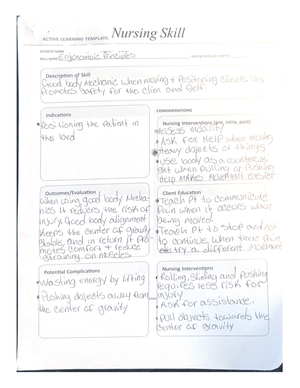 ACTIVE LEARNING TEMPLATE: Nursing Skill
STUDENT NAME
SKILL NAME Ergonomic Principles
REVIEW MODULE CHAPTER
Description of Skill
Good body Mechanic when moving + Positioning clients this
Promotes Safety for the client and Self.
Indications
Positioning the patient in
the bed
CONSIDERATIONS
Nursing Interventions (pre, intra, post)
Assess Mobility
Ask for Help when moving
Heavy objects or things
use body as a counter
when pulling or pushing
Help Makes Movement easier
Outcomes/Evaluation
when using good body Mecha-
nics It reduces the risk of
injury. Good body alignment
Keeps the center of gravity
Stable, and in return it pro-
motes comfort + reduce
straining on Muscles
Client Education
Teach Pt to communicate
Pain when it occurs when
being moved
Teach Pt to stop and not
to continue, when there pain
try a different Movement
Potential Complications
Wasting energy by lifting
Pushing objects away from
the center of gravity
Nursing Interventions
Rolling, Sliding and pushing
requires less risk for
injury
Ask for assistance.
Pull objects towards the
center of gravity